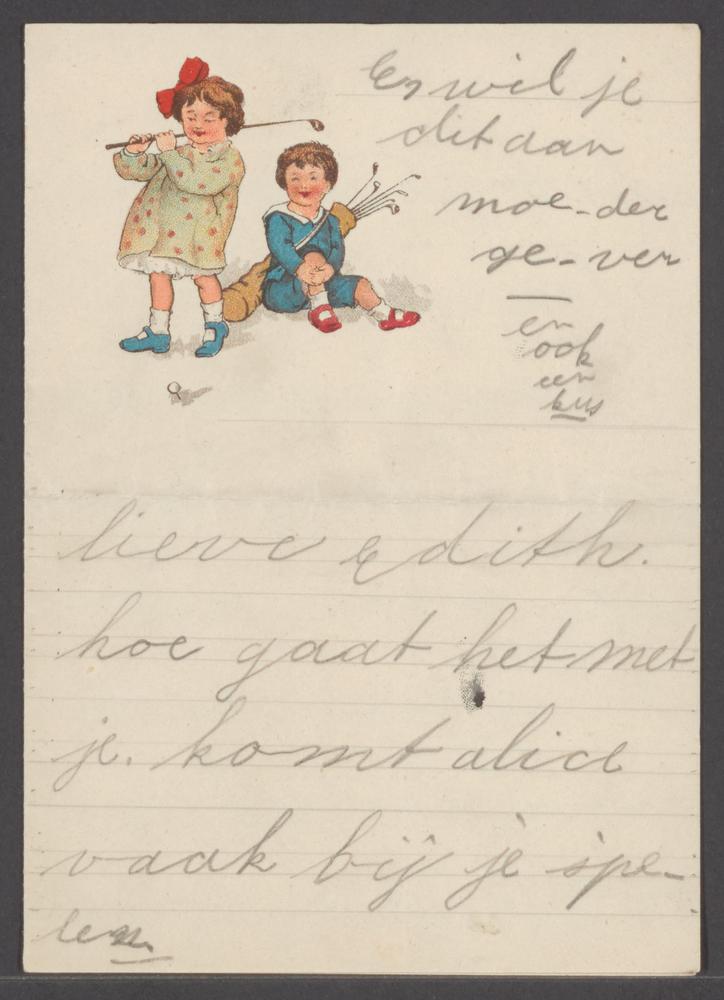 En wil je
dit aan
moe-der
ge-ven
en
ook
een
kus
lieve Edith.
hoe gaat het met
je. komt alice
vaak bij je spe-
len.